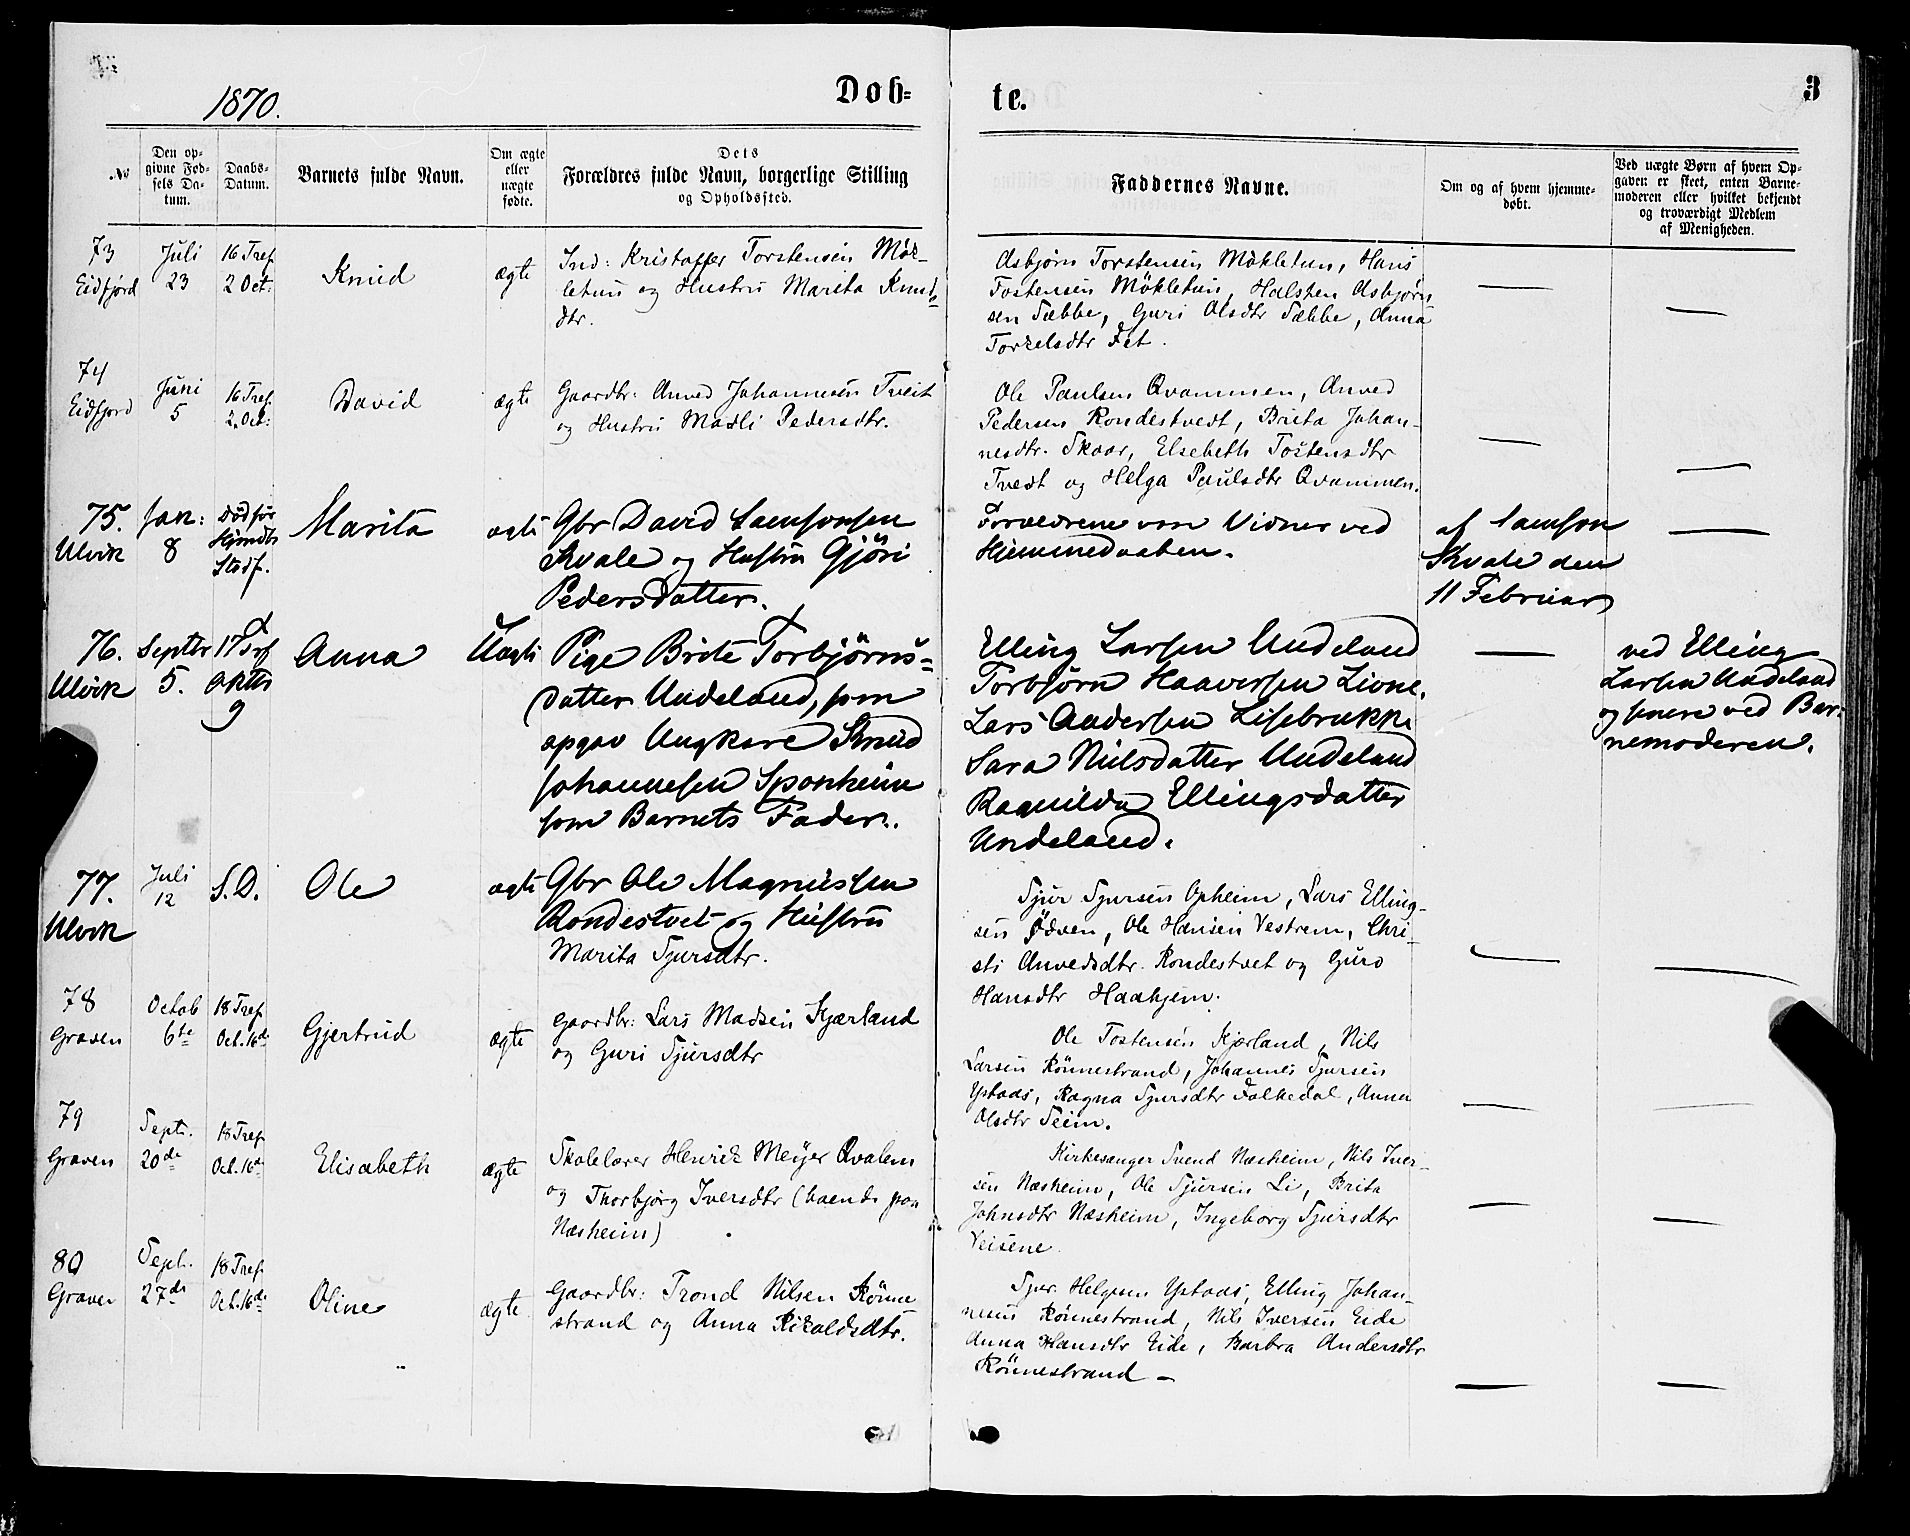 1870.
Døb=
te.
3
No
Den op-
givne Fød-
sels Da-
tum.
Daabs-
Datum.
Barnets fulde Navn.
Om ægte
eller
uægte
fødte.
Dets
Forældres fulde Navn, borgerlige Stilling
og Opholdssted.
Faddernes Navne.
Om og af hvem hjemme-
døbt.
Ved uægte Børn af hvem Op-
gaven er skeet, enten Barne-
moderen eller hvilket bekjendt
og troværdigt Medlem
af Menigheden.
73
Eidfjord
Juli
23
16 Tref
2 Oct:
Knud
ægte
Ind: Kristoffer Torstensen Mök-
letun og Hustru Marita Knuds-
dtr.
Asbjørn Torstensen Mökletun, Hans
Tostensen Mökletun, Halsten Asbjørn-
sen Sæbbe, Guri Olsdtr Sæbbe, Anna
Torkelsdtr Fet.
74
Eidfjord
Juni
5
16 Tref.
2. Oct:
David
ægte
Gaardbr: Anved Johannesen Tveit
og Hustru Madli Pedersdtr.
Ole Paulsen Qvammen, Anved
Pedersen Rondestvedt, Brita Johan-
nesdtr. Skaar, Elsebeth Tostensdtr
Tvedt og Helga Paulsdtr Qvammen.
75.
Ulvik
Jan:
8
Död før
Stadf.
Marita
ægte
Gbr David Samsonsen
Kvale og Hustru Gjöri
PedersDatter.
Forældrene var Vidner ved
Hjemmedaaben.
af Samson
Kvale den
11 Februar
76.
Ulvik
Septbr
5.
17 Trf
Oktbr
9
Anna
Uægte
Pige Brite Torbjörns=
datter Undeland, som
opgav Ungkare Knud
Johannesen Sponheim
som Barnets Fader.
Elling Larsen Undeland
Torbjörn Haaversen Lione.
Lars Andersen Lisebrække
Sara Nilsdatter Undeland
Ragnilda Ellingsdatter
Undeland.
ved Elling
Larsen Undeland
og senere ved Bar-
nemoderen.
77.
Ulvik
Juli
12
S.D.
Ole
ægte
Gbr Ole Magnussen
Rondestvet og Hustru
Marita Sjursdtr.
Sjur Sjursen Opheim, Lars Elling-
sen Ødven, Ole Hansen Vestrem, Chri-
sti Anvedsdtr. Rondestvet og Guro
Hansdtr Haahjem.
78
Graven
Octob
6te
18 Tref
Oct. 16de
Gjertrud
ægte
Gaardbr: Lars Madsen Kjærland
og Guri Sjursdtr
Ole Tostensen Kjærland, Nils
Larsen Rönnestrand, Johannes Sjursen
Ystaas, Ragna Sjursdtr Folkedal, Anna
Olsdtr Seim.
79
Graven
Septr.
20de
18 Tref
Oct. 16de
Elisabeth
ægte
Skolelærer Henrik Meyer Qvalem
og Thorbjørg Iversdtr (boende paa
Næsheim)
Kirkesanger Svend Næsheim, Nils Iver-
sen Næsheim, Ole Sjursen Li, Brita
Johnsdtr Næsheim, Ingeborg Sjursdtr
Veisene
80
Graven
Sept.
27de
18 Tref
Oct. 16de
Oline
ægte
Gaardbr: Trond Nilsen Rönne-
strand og Anna Rikoldsdtr.
Sjur Helgesen Ystaas, Elling Johan-
nesen Rönnestrand, Nils Iversen Eide
Anna Hansdtr Eide, Barbra Andersdtr
Rönnestrand